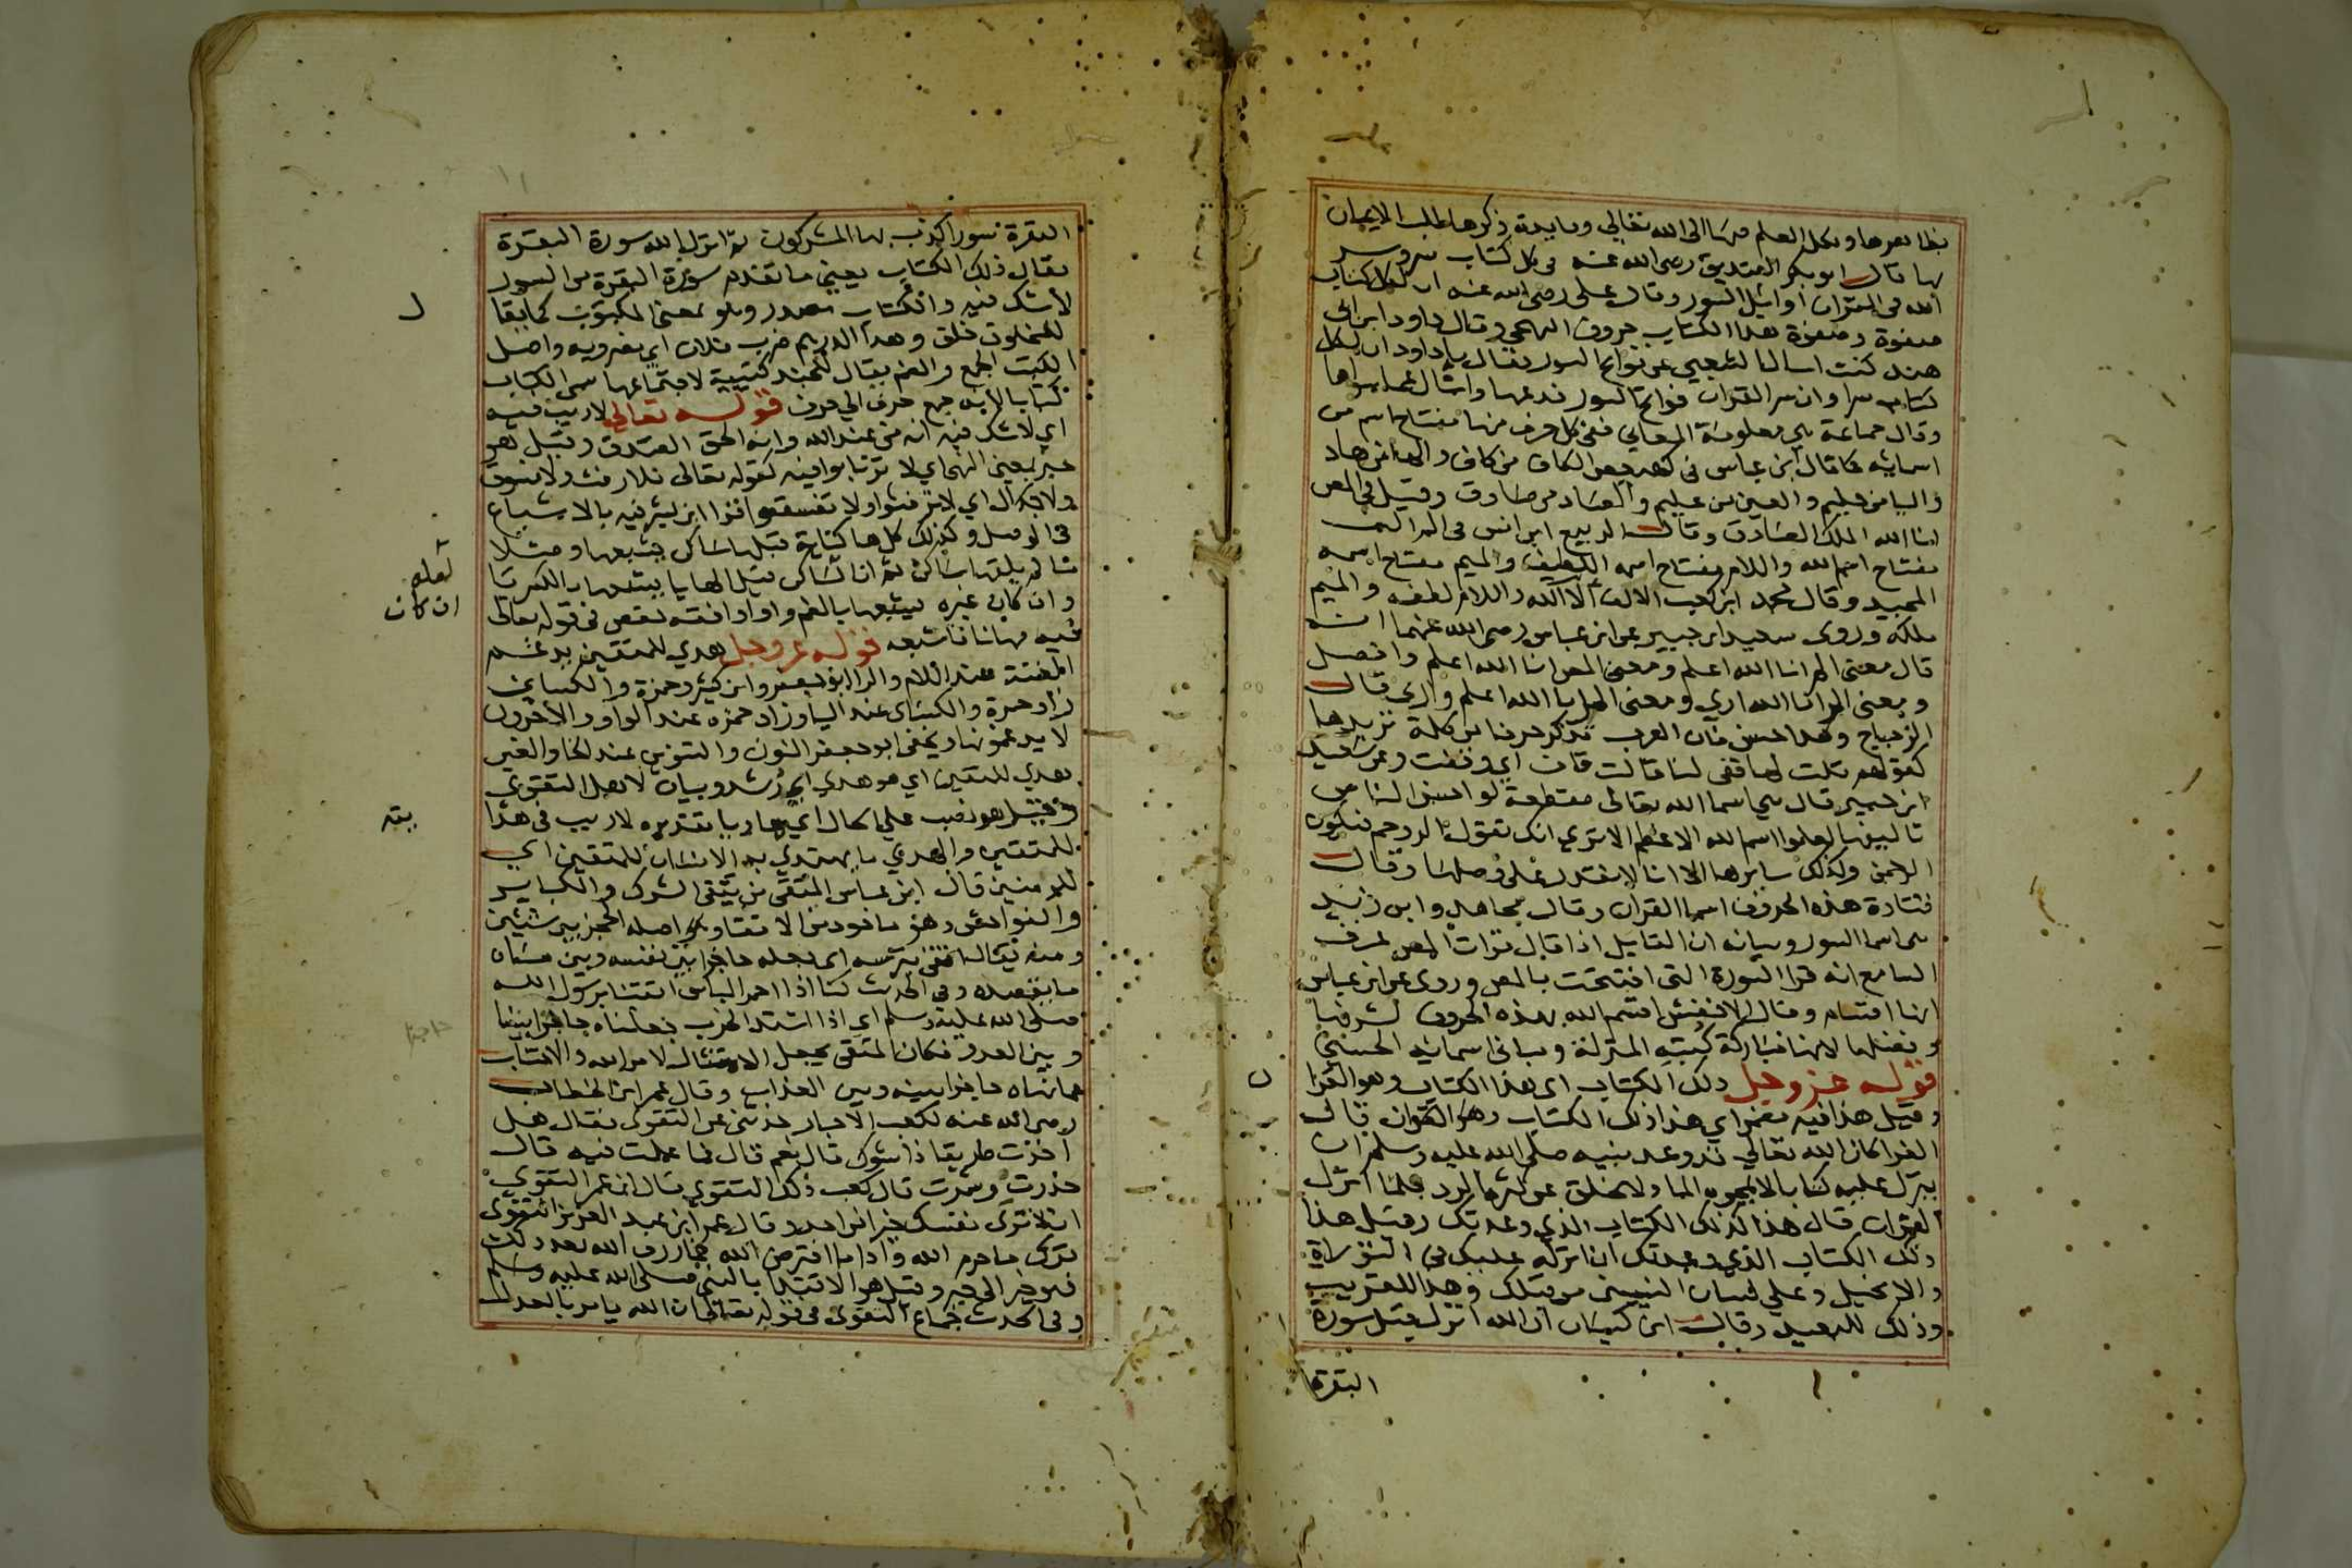 بظاهرها ونكل العلم فيها الى الله تعالى وفايدة ذكرها طلب الايمان
بها قال ابو بكر الصديق رضى الله عنه فى كل كتاب سر وسر
الله فى القران اوائل السور وقال على رضى الله عنه ان لكل كتاب
صفوة وصفوة هذا الكتاب حروف التهجي وقال داود ابن ابى
هند كنت اسال الشعبي عن فواتح السور فقال يا داود ان لكل
كتاب سرا وان سر القران فواتح السور فدعها واسال عما سواها
وقال جماعة هي معلومة المعاني فقيل كل حرف منها مفتاح اسم من
اسمائه كما قال ابن عباس فى كهيعص الكاف من كاف والها من هاد
واليا من حكيم والعين من عليم والصاد من صادق وقيل فى المص
انا الله الملك الصادق وقال الربيع ابن انس فى الم الالف
مفتاح اسم الله واللام مفتاح اسمه اللطيف والميم مفتاح اسمه
المجيد وقال محمد ابن كعب الالف الا الله واللام لطفه والميم
ملكه وروى سعيد ابن جبير عن ابن عباس رضى الله عنهما انه
قال معنى الم انا الله اعلم ومعنى المص انا الله اعلم وافصل
ومعنى الر انا الله ارى ومعنى المر انا الله اعلم وارى قال
الزجاج وهذا حسن فان العرب تذكر حرفا من كلمة تريدها
كقولهم قلت لها قفى لنا قالت قاف اي وقفت وعن سعيد
ابن جبير قال هى اسما الله تعالى مقطعة لو احسن الناس
تاليفها لعلموا اسم الله الاعظم الا ترى انك تقول الر وحم فتكون
الرحمن وكذلك سايرها الا انا لا نقدر على وصلها وقال
قتادة هذه الحروف اسما القران وقال مجاهد وابن زيد
هى اسما السور وبيانه ان القايل اذا قال قرات المص عرف
السامع انه قرا السورة التى افتتحت بالمص وروى عن ابن عباس
انها اقسام وقال الاخفش اقسم الله بهذه الحروف لشرفها
وفضلها لانها مباركة كتبه المنزلة ومبانى اسمائه الحسنى
قوله عز وجل ذلك الكتاب اى هذا الكتاب وهو القرا
وقيل هذا فيه مضمر اي هذا ذلك الكتاب وهو القران قال
الفرا كان الله تعالى قد وعد نبيه صلى الله عليه وسلم ان
ينزل عليه كتابا لا يمحوه الما ولا يخلق عن كثرة الرد فلما انزل
القران قال هذا ذلك الكتاب الذي وعدتك وقيل هذا
ذلك الكتاب الذي وعدتك ان انزله عليك فى التوراة
والانجيل وعلى لسان النبيين من قبلك وهذا للتقريب
وذلك للبعيد وقال ابن كيسان ان الله انزل قبل سورة
البقرة
البقرة سورا كذب بها المشركون ثم انزل الله سورة البقرة
فقال ذلك الكتاب يعني ما تقدم سورة البقرة من السور
لا شك فيه والكتاب مصدر وهو بمعنى المكتوب كما يقا
للمخلوق خلق وهذا الدرهم ضرب فلان اي مضروبه واصل
الكتب الجمع والضم يقال للجند كتيبة لاجتماعها سمى الكتاب
كتابا لانه جمع حرف الى حرف قوله تعالى لا ريب فيه
اي لا شك فيه انه من عند الله وانه الحق الصدق وقيل هو
خبر بمعنى النهى اي لا ترتابوا فيه كقوله تعالى فلا رفث ولا فسوق
ولا جدال اي لا ترفثوا ولا تفسقوا قرا ابن كثير فيه بالاشباع
فى الوصل وكذلك كل ها كناية قبلها ساكن يشبعها وصلا
ما لم يلقها ساكن ثم ان الساكن قبل الها يا يشبعها بالكسر يا
وان كان غيره يشبعها بالضم واوا وافقه حفص فى قوله تعالى
فيه مهانا فاشبعه قوله عز وجل هدي للمتقين يدغم
الغنة عند اللام والرا ابو جعفر وابن كثير وحمزة والكسائي
زاد حمزة والكسائى عند اليا وزاد حمزه عند الواو والاخرون
لا يدغمونها ويخفى ابو جعفر النون والتنوين عند الخا والغين
هدي للمتقين اي هو هدي اي رشد وبيان لاهل التقوى
وقيل هو نصب على الحال اي هاديا تقديره لا ريب فى هدا
للمتقين والهدي ما يهتدي به الانسان للمتقين اي
للمومنين قال ابن عباس المتقى من يتقى الشرك والكباير
والفواحش وهو ماخوذ من الاتقا واصله الحجز بين شيئين
ومنه يقال اتقى بترسه اى جعله حاجزا بين نفسه وبين
ما يقصده وفى الحديث كنا اذا احمر الباس اتقينا برسول الله
صلى الله عليه وسلم اي اذا اشتد الحرب جعلناه حاجزا بيننا
وبين العدو فكان المتقى يجعل الامتثال لامر الله والاجتناب
عما نهاه حاجزا بينه وبين العذاب وقال عمر ابن الخطاب
رضى الله عنه لكعب الاحبار حدثنى عن التقوى فقال هل
اخذت طريقا ذا شوك قال نعم قال فما عملت فيه قال
حذرت وشمرت قال كعب ذلك التقوى قال ابن عمر التقوى
ان لا ترى نفسك خيرا من احد وقال عمر ابن عبد العزيز التقوى
ترك ما حرم الله وادا ما افترض الله فما رزق الله بعد ذلك
فهو خير الى خير وقيل هو الاقتدا بالنبى صلى الله عليه وسلم
وفى الحديث جماع التقوى فى قوله تعالى ان الله يامر بالعدل
لعله
ان كان